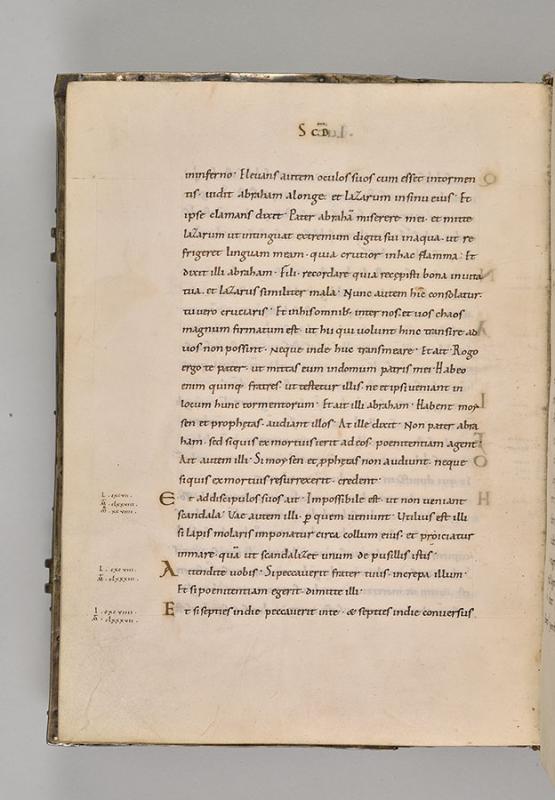 S C̄D
ininferno · Eleuans autem oculos suos cum esset intormen
tis · uidit abraham alonge · et lazarum insinu eius · Et
ipse clamans dixit · Pater abrahā miserere mei · et mitte
lazarum ut intinguat extremum digiti sui inaqua · ut re
frigeret linguam meam · quia crucior inhac flamma · Et
dixit illi abraham · Fili · recordare quia recępisti bona inuita
tua · et lazarus similiter mala · Nunc autem hic consolatur ·
tu uero cruciaris · Et inhis omnib; inter nos et uos chaos
magnum firmatum est · ut hii qui uolunt hinc transire ad
uos non possint · neque inde huc transmeare · Et ait · Rogo
ergo te pater · ut mittas eum indomum patris mei · Habeo
enim quinq; fratres · ut testetur illis · ne et ipsi ueniant in
locum hunc tormentorum · Et ait illi abraham · Habent moy
sen et prophętas · audiant illos · At ille dixit · Non pater abra
ham · sed si quis ex mortuis ierit ad eos · poenitentiam agent ·
Ait autem illi · Si moysen et pphętas non audiunt · neque
si quis ex mortuis resurrexerit · credent ·
Et ad discipulos suos ait · Impossibile est · ut non ueniant
scandala · Vae autem illi · p quem ueniunt · Utilius est illi
si lapis molaris imponatur circa collum eius · et proiciatur
inmare · quā ut scandalizet unum de pusillis istis ·
Attendite uobis · Si peccauerit frater tuus · increpa illum ·
Et si poenitentiam egerit · dimitte illi ·
Et si septies indie peccauerit inte · & septies indie conuersus